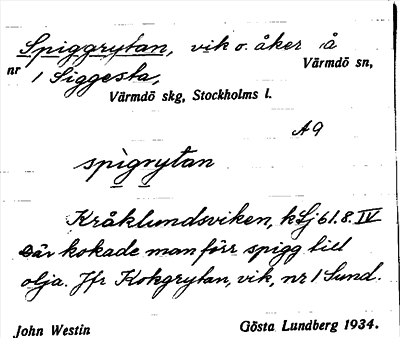 Spiggrytan, vik o. åker å
nr 1 Siggesta, Värmdö sn,
Värmdö skg, Stockholms l.
A9
spigrytan
Kråklundsviken, kLj 61.8.IV
Där kokade man förr spigg till
olja. Jfr Kokgrytan, vik, nr 1 Sund.
John Westin Gösta Lundberg 1934.